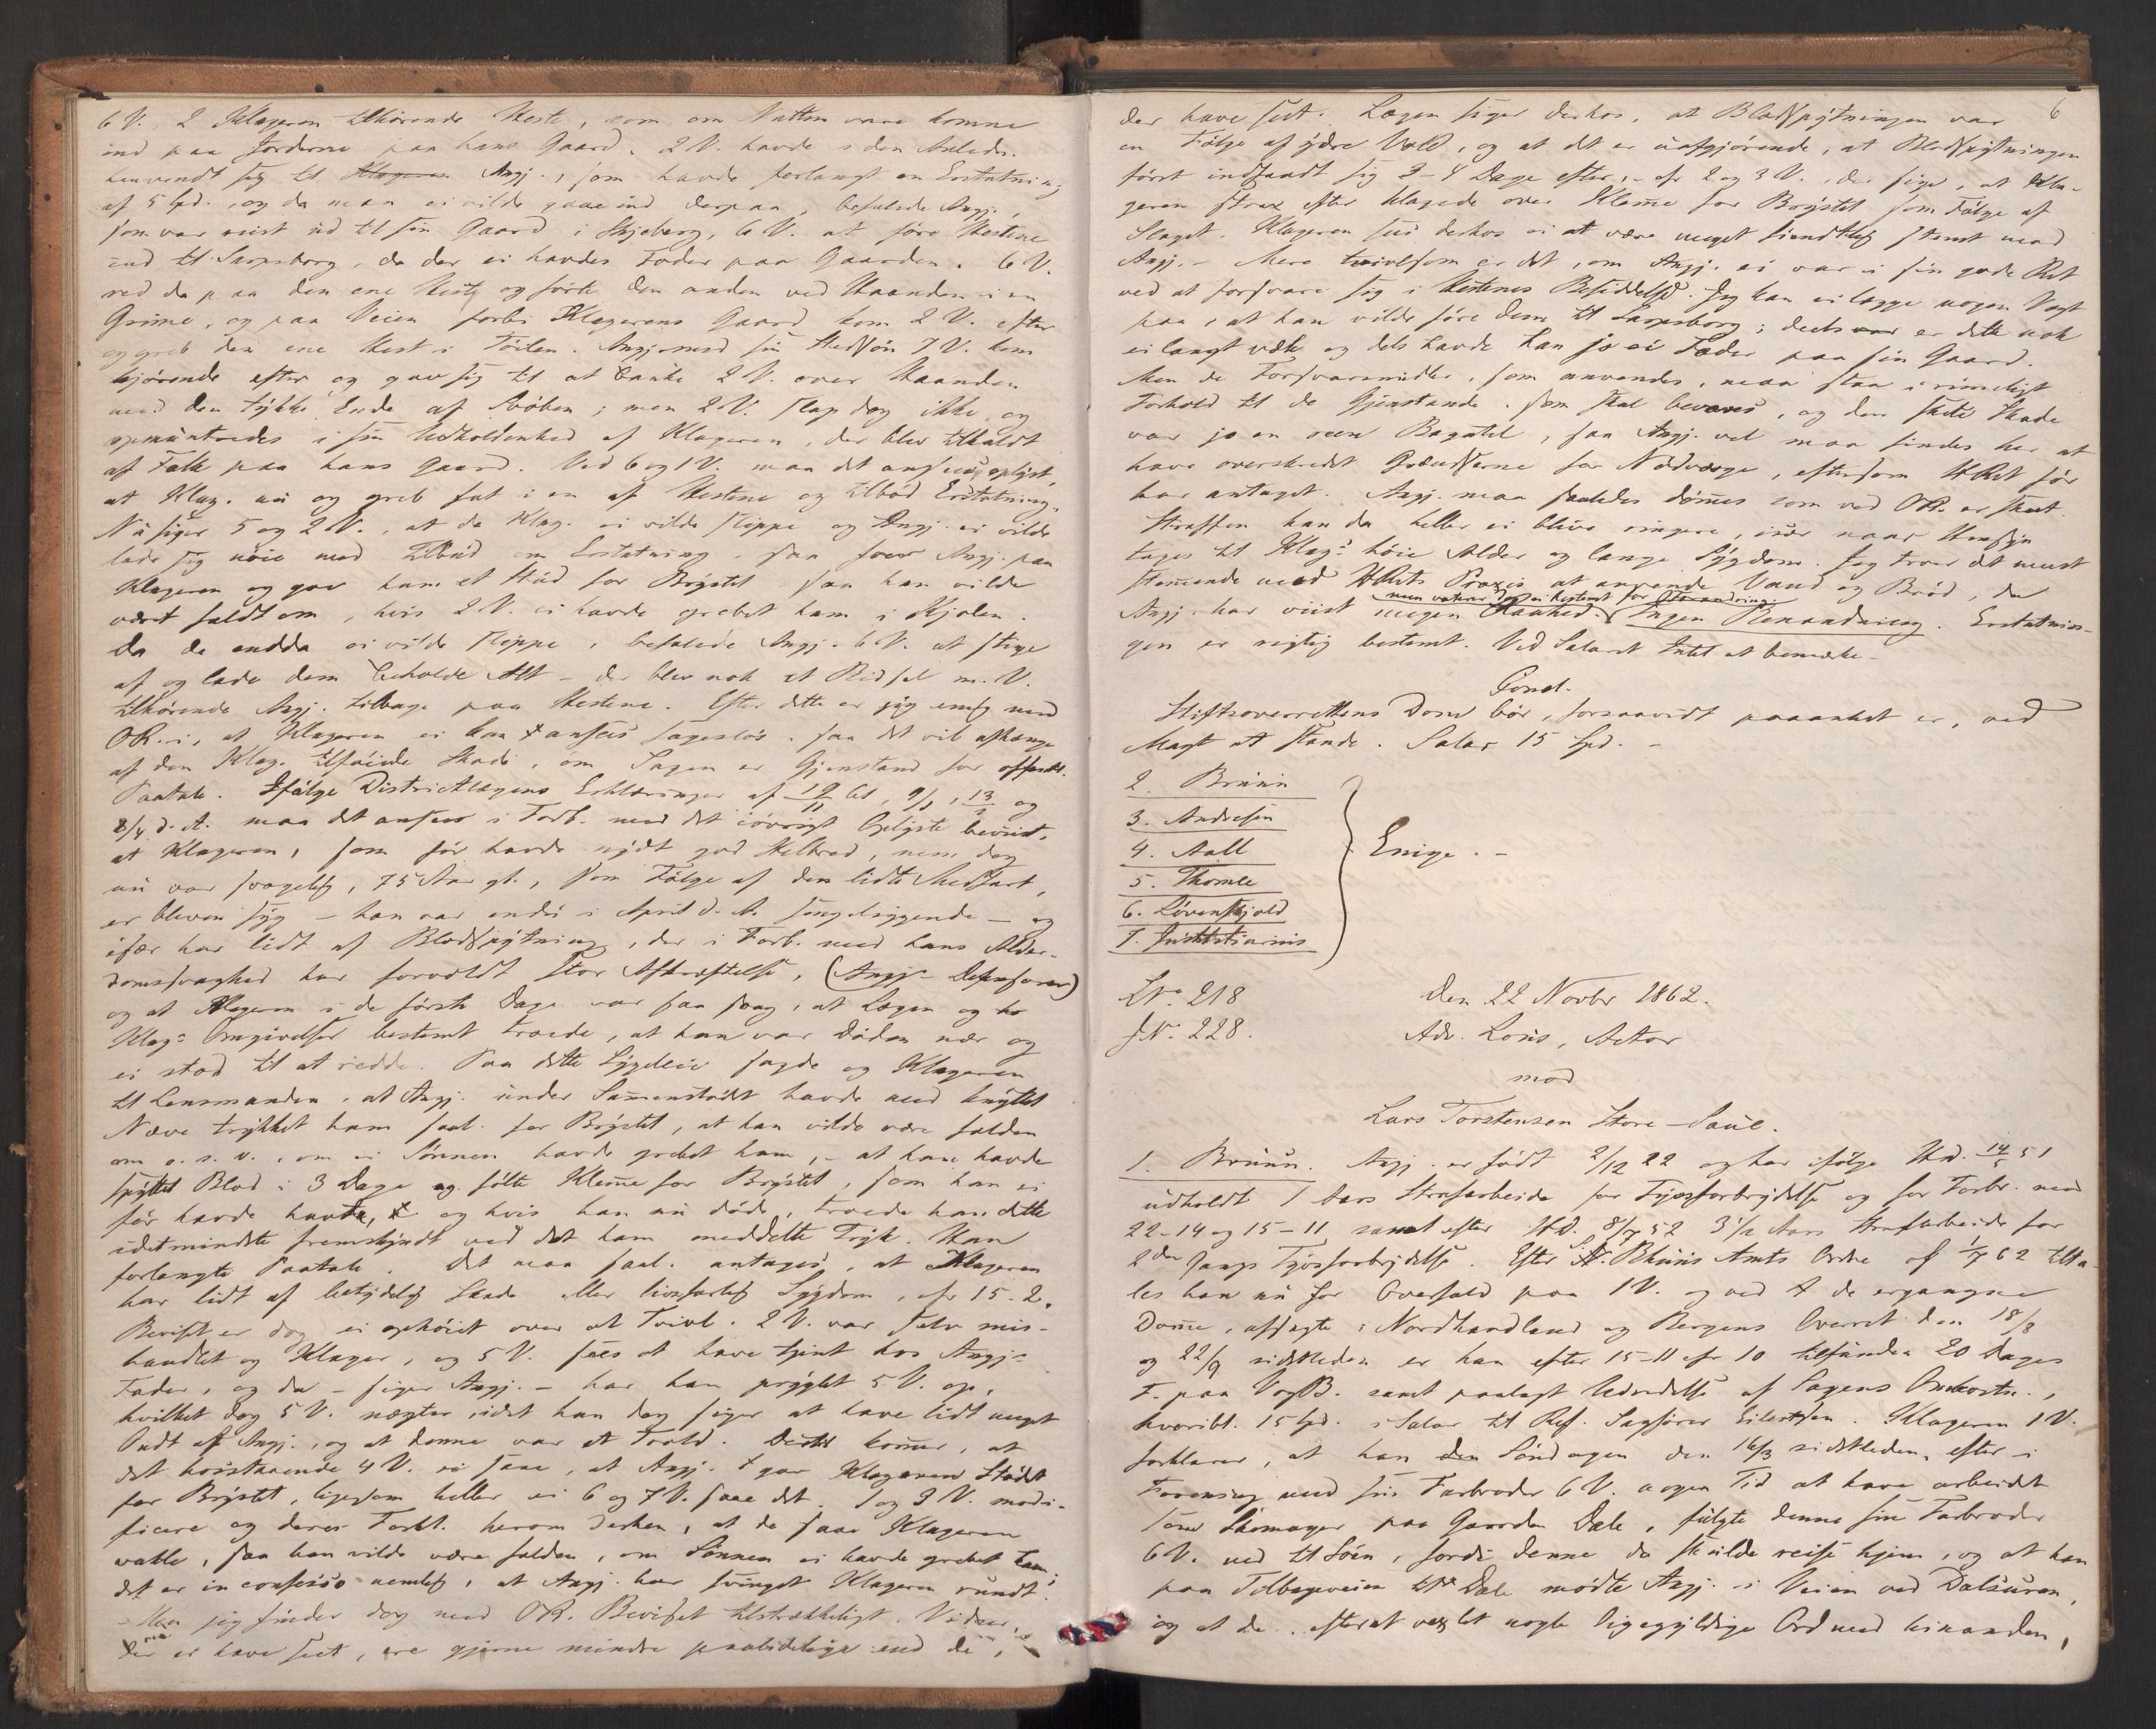 6 V. 2 Klageren tilhørende Heste, som om Natten vare komne
ind paa Jorderne paa hans Gaard. 2 V. havde i den Anledn.
henvendt sig til Klageren Angj., som havde forlangt en Erstatning
af 5 Spd., og da man ei vilde gaae ind derpaa, befalede Angj.,
som var reist ud til sin Gaard i Skjeberg, 6 V. at føre Hestene
ind til Sarpsborg, da der ei havdes Foder paa Gaarden. 6 V.
red da paa den ene Hest og førte den anden ved Haanden i en
Grime, og paa Veien forbi Klagerens Gaard kom 2 V. efter
og greb den ene Hest i Tøilen. Angj. med sin Stedsøn 7 V. kom
kjørende efter og gav sig til at banke 2 V. over Haanden
med den tykke Ende af Svøben; men 2 V. slap dog ikke, og
opmuntredes i sin Udholdenhed af Klageren, der blev tilkaldt
af Folk paa hans Gaard. Ved 6 og 1 V. maa det ansees oplyst,
at Klag. nu og greb fat i en af Hestene og tilbød Erstatning.
Nu siger 5 og 2 V., at da Klag. ei vilde slippe og Angj. ei vilde
lade sig nøie med Tilbud om Erstatning, saa foer Angj. paa
Klageren og gav ham et Stød for Brystet saa han vilde
været faldt om, hvis 2 V. ei havde grebet ham i Kjolen.
Da de endda ei vilde slippe, befalede Angj. 6 V. at stige
af og lade dem beholde Alt - der blev nok et Bidsel m. V.
tilhørende Angj. tilbage paa Hestene. Efter dette er jeg enig med
OR. i, at Klageren ei kan ansees sagesløs, saa det vil afhænge
af den Klag. tilføiede Skade, om Sagen er Gjenstand for offentl.
Paatale. Ifølge Districtlægens Erklæringer af 19/11 61, 9/1, 13/2 og
8/4 d. A. maa det ansees i Forb. med det iøvrigt Oplyste beviist,
at Klageren, som før havde nydt god Helbred, nem dog
nu var svagelig, 75 Aar gl., som Følge af den lidte Medfart,
er bleven syg - han var endnu i April d. A. sengeliggende - og
især har lidt af Blodspytning, der i Forb. med hans Alder-
domssvaghed har forvoldt stor Afkræftelse, (Angjs Defensor)
og at Klageren i de første Dage var saa svag, at Lægen og
Klags Omgivelser bestemt troede, at han var Døden nær og
ei stod til at redde. Paa dette Sygeleie sagde og Klageren
til Lensmanden, at Angj. under Sammenstødet havde med knyttet
Næve trykket ham saal. for Brystet, at han vilde være falden
om o. s. v., om ei Sønnen havde grebet ham, - at han havde
spyttet Blod i 3 Dage og følte Klemme for Brystet, som han ei
før havde havt, og hvis han nu døde, troede han dette
idetmindste fremskyndt ved det ham meddelte Tryk. Han
forlangte Paatale. Det maa saal. antages, at Klageren
har lidt af betydelig Skade eller livsfarlig Sygdom, cfr 15-2.
Beviset er dog ei ophøiet over al Tvivl. 2 V. var selv mis-
handlet og Klager, og 5 V. sees at have tjent hos Angjs
Fader, og da - siger Angj. - har han pryglet 5 V. op,
hvilket dog 5 V. nægter, idet han dog siger at have lidt meget
Ondt af Angj., og at denne var et Trold. Dertil kommer, at
det hosstaaende 4 V. ei saae, at Angj. gav Klageren Stødet
for Brystet, ligesom heller ei 6 og 7 V. saae det. 1 og 3 V. modi-
ficere og deres Forkl. herom derhen, at de saae Klageren
vakle, saa han vilde være falden, om Sønnen ei havde grebet ham;
det er in confesso nemlig, at Angj. har svinget Klageren rundt.
- Men jeg finder dog med OR. Beviset tilstrækkeligt. Vidner,
der ei have seet, ere gjerne mindre paalidelige end de,
6
der have seet. Lægen siger derhos, at Blodspytningen var
en Følge af ydre Vold, og at det er uafgjørende, at Blodspytningen
først indfandt sig 3-4 Dage efter, - cfr 2 og 3 V., der sige, at Kla-
geren strax efter klagede over Klemme for Brystet som Følge af
Slaget. Klageren sees derhos ei at være meget fiendtlig stemt mod
Angj. - Mere tvivlsom er det, om Angj. ei var i sin gode Ret
ved at forsvare sig i Hestenes Besiddelse. Jeg kan ei lægge nogen Vægt
paa, at han vilde føre dem til Sarpsborg; deels er dette nok
ei langt væk og dels havde han jo ei Foder paa sin Gaard.
Men de Forsvarsmidler, som anvendes, maa staa i rimeligt
Forhold til de Gjenstande, som skal bevares, og den skete Skade
var jo en reen Bagatel, saa Angj. vel maa findes her at
have overskredet Grændserne for Nødværge, eftersom HRet før
har antaget. Angj. maa saaledes dømmes som ved OR. er skeet.
Straffen kan da heller ei blive ringere, især naar Hensyn
tages til Klags høie Alder og lange Sygdom. Jeg troer det meest
stemmende med HRets Praxis at anvende Vand og Brød, da
men voterer dog ei bestemt for Forandring.
Angj. har viist megen Raahed. Ingen Reformandring. Erstatnin-
gen er rigtig bestemt. Ved Salaret Intet at bemærke. -
Concl.
Stiftsoverrettens Dom bør, forsaavidt paaanket er, ved
Magt at stande. Salar 15 Spd. -
2. Bruun
3. Andresen
4. Aall
5. Thomle
6. Løvenskjold
7. Justitiarius
Enige. -
LNo 218
Den 22 Novbr 1862.
JNo 228.
Adv. Lous, Actor
mod
Lars Torstensen Store-Saue.
1. Bruun. Angj. er født 2/12 22 og har ifølge Hd. 14/5 51
udholdt 1 Aars Strafarbeide for Tyvsforbrydelse og for Forbr. mod
22-14 og 15-11 samt efter Hd. 8/7 52 3 1/2 Aars Strafarbeide for
2den Gangs Tyvsforbrydelse. Efter S. Bhuus Amts Ordre af 1/7 62 tilta-
les han nu for Overfald paa 1 V. og ved de ergangne
Domme, afsagte i Nordhordland og Bergens Overret den 18/8
og 22/9 sidstleden er han efter 15-11 cfr 10 tilfunden 20 Dages
F. paa VogB. samt paalagt Udredelse af Sagens Omkostn.,
hvoribl. 15 Spd. i Salar til Ref. Sagfører Eilertsen. Klageren 1 V.
forklarer, at han den Søndagen den 16/3 sidstleden, efter i
Forening med sin Farbroder 6 V. nogen Tid at have arbeidet
som Skomager paa Gaarden Dale, fulgte denne sin Farbroder
6 V. ned til Søen, fordi denne da skulde reise hjem, og at han
paa Tilbageveien til Dale mødte Angj. i Veien ved Dalsuren,
og at de.. efterat vexlet nogle ligegyldige Ord med hinanden,